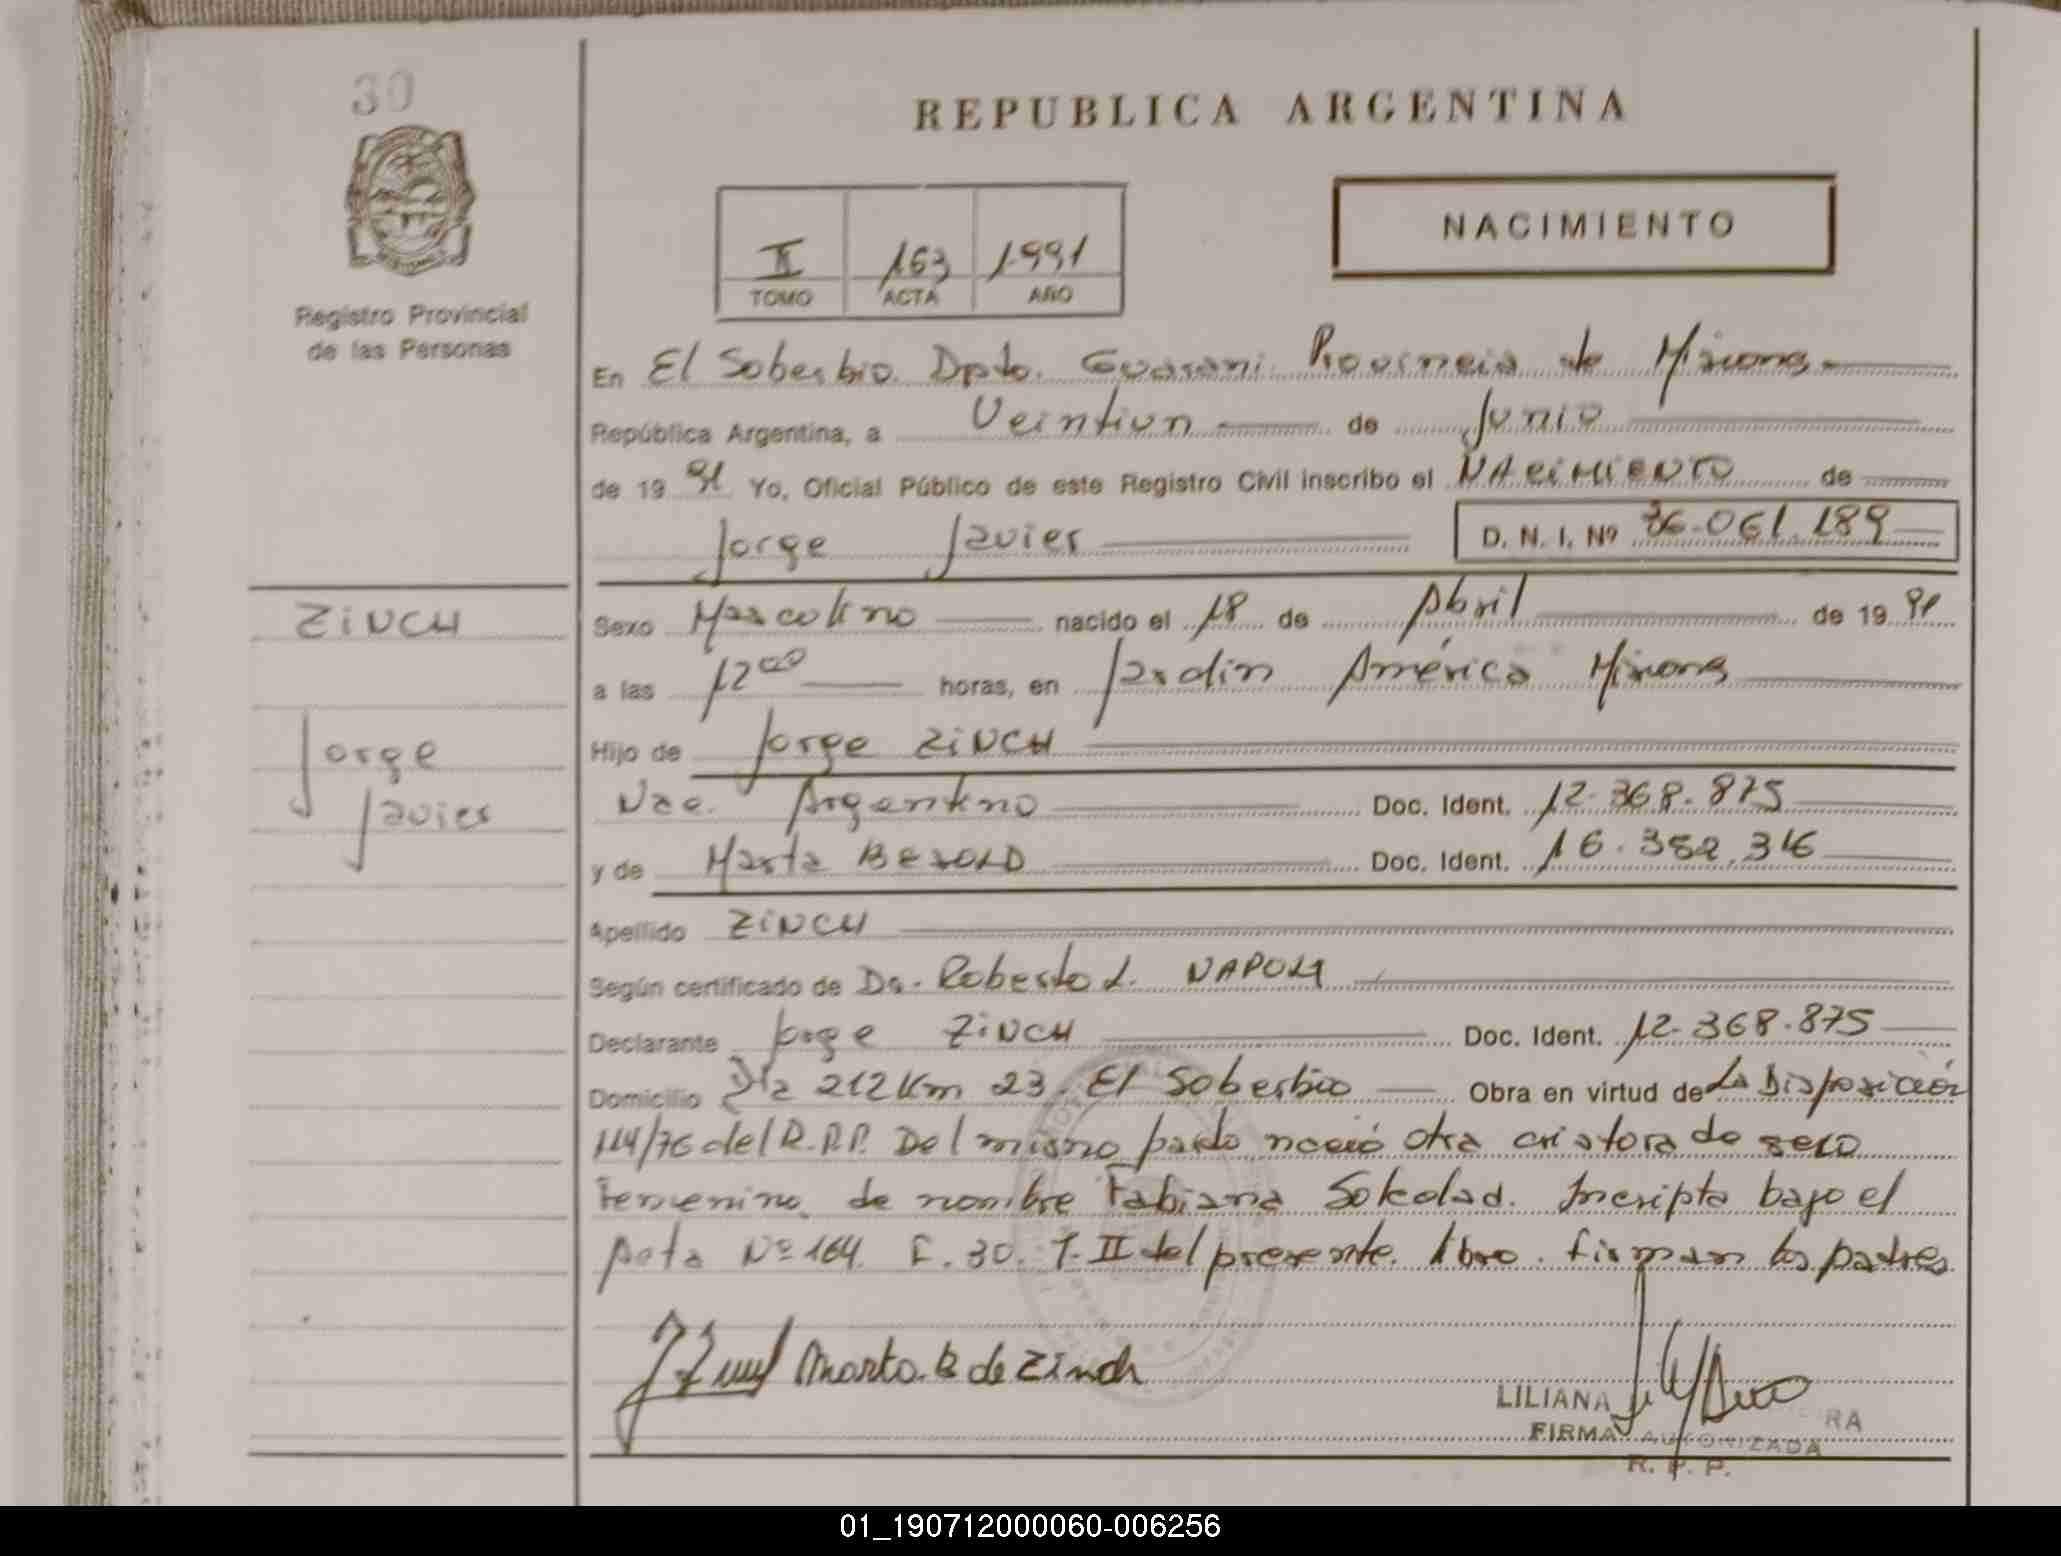 30
REPUBLICA ARGENTINA
NACIMIENTO
II 163 1.991
TOMO ACTA AÑO
Registro Provincial
de las Personas
En El Soberbio. Dpto. Guarani. Provincia de Misiones
República Argentina, a Veintiun de Junio
de 19 91 Yo, Oficial Público de este Registro Civil inscribo el NACIMIENTO de
Jorge Javier D. N. I. Nº 36.061.189
ZINCH
Jorge
Javier
Sexo Masculino nacido el 18 de Abril de 19 91
a las 12 00 horas, en Jardin América Misiones
Hijo de Jorge ZINCH
Nac. Argentino Doc. Ident. 12.368.875
y de Marta Doc. Ident. 16.352.316
Apellido ZINCH
Según certificado de Dr. Roberto L. NAPOLI
Declarante Jorge ZINCH Doc. Ident. 12.368.875
Domicilio 212 Km 23. El Soberbio Obra en virtud de La Disposición
114/76 del R.P.P. Del mismo parto nació otra criatura de sexo
Femenino de nombre Fabiana Soledad. Inscripta bajo el
Acta Nº 164. F. 30. T. II del presente libro. Firman los padres
Marta. B de Zinch
LILIANA RA
FIRMA AUTORIZADA
R. P. P.
01_190712000060-006256